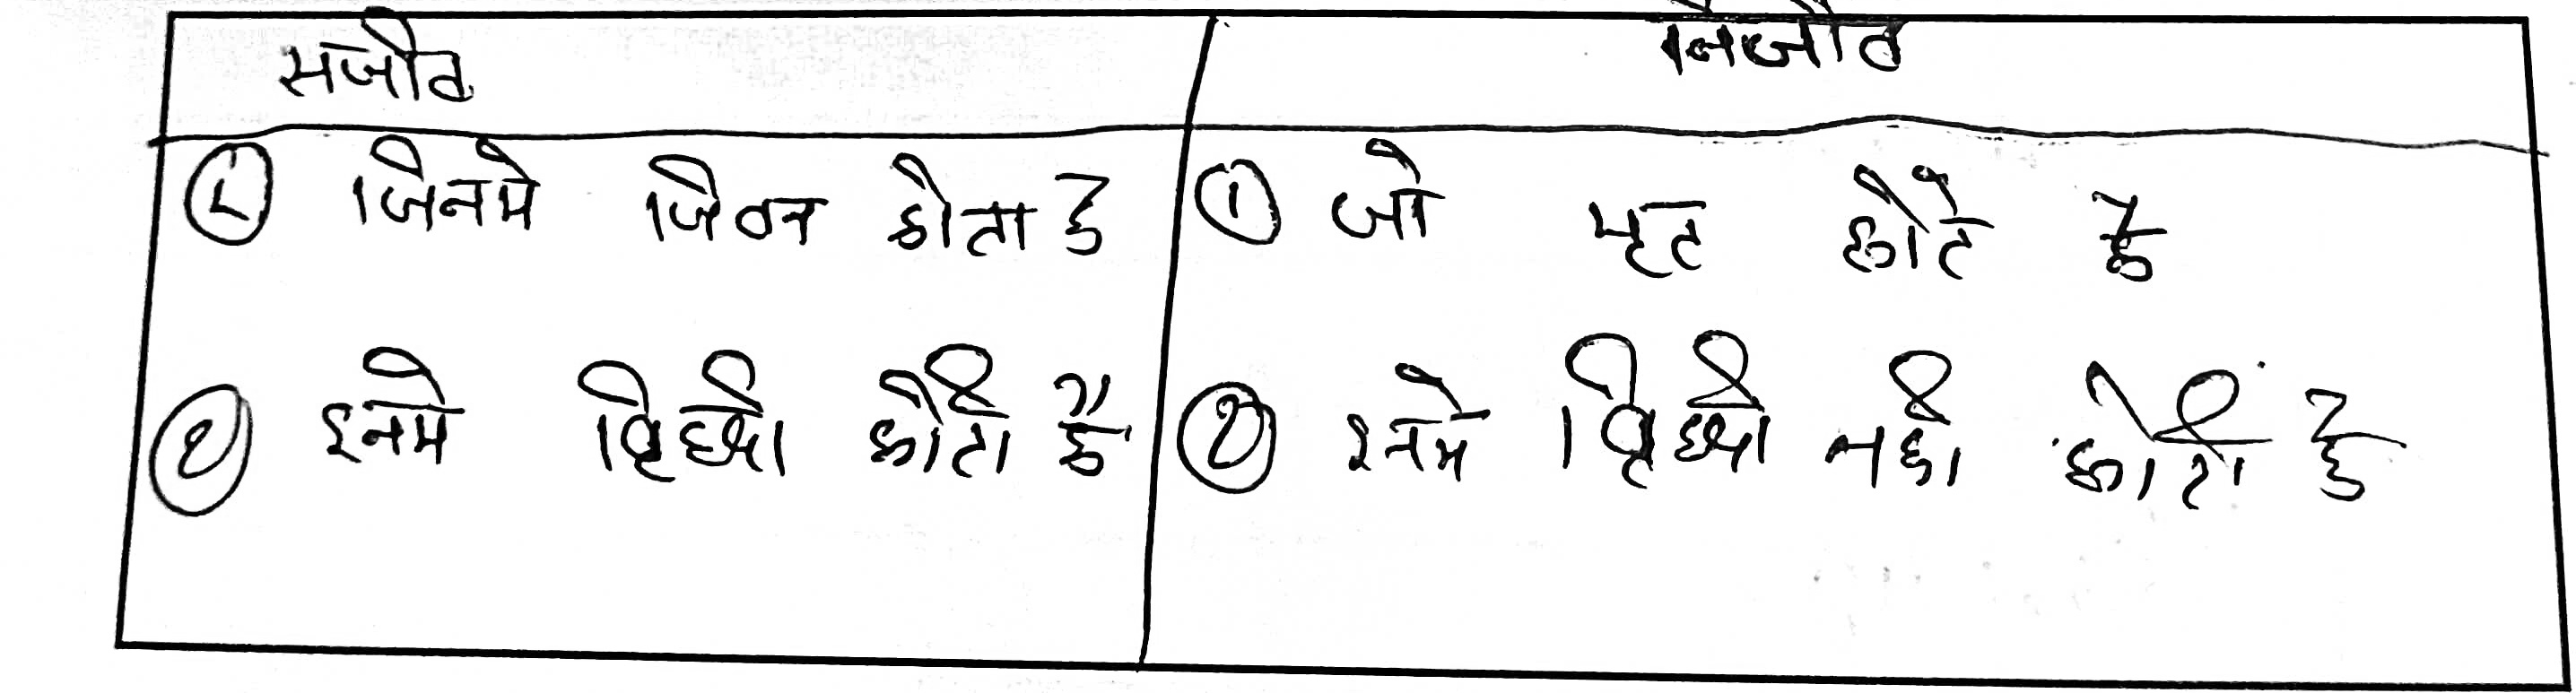 सजीव
निर्जीव
① जिनमे जिवन होता है
① जो मृत होते है
② इनमे वृिध्दी होती है
② इनमे वृिध्दी नही होती है